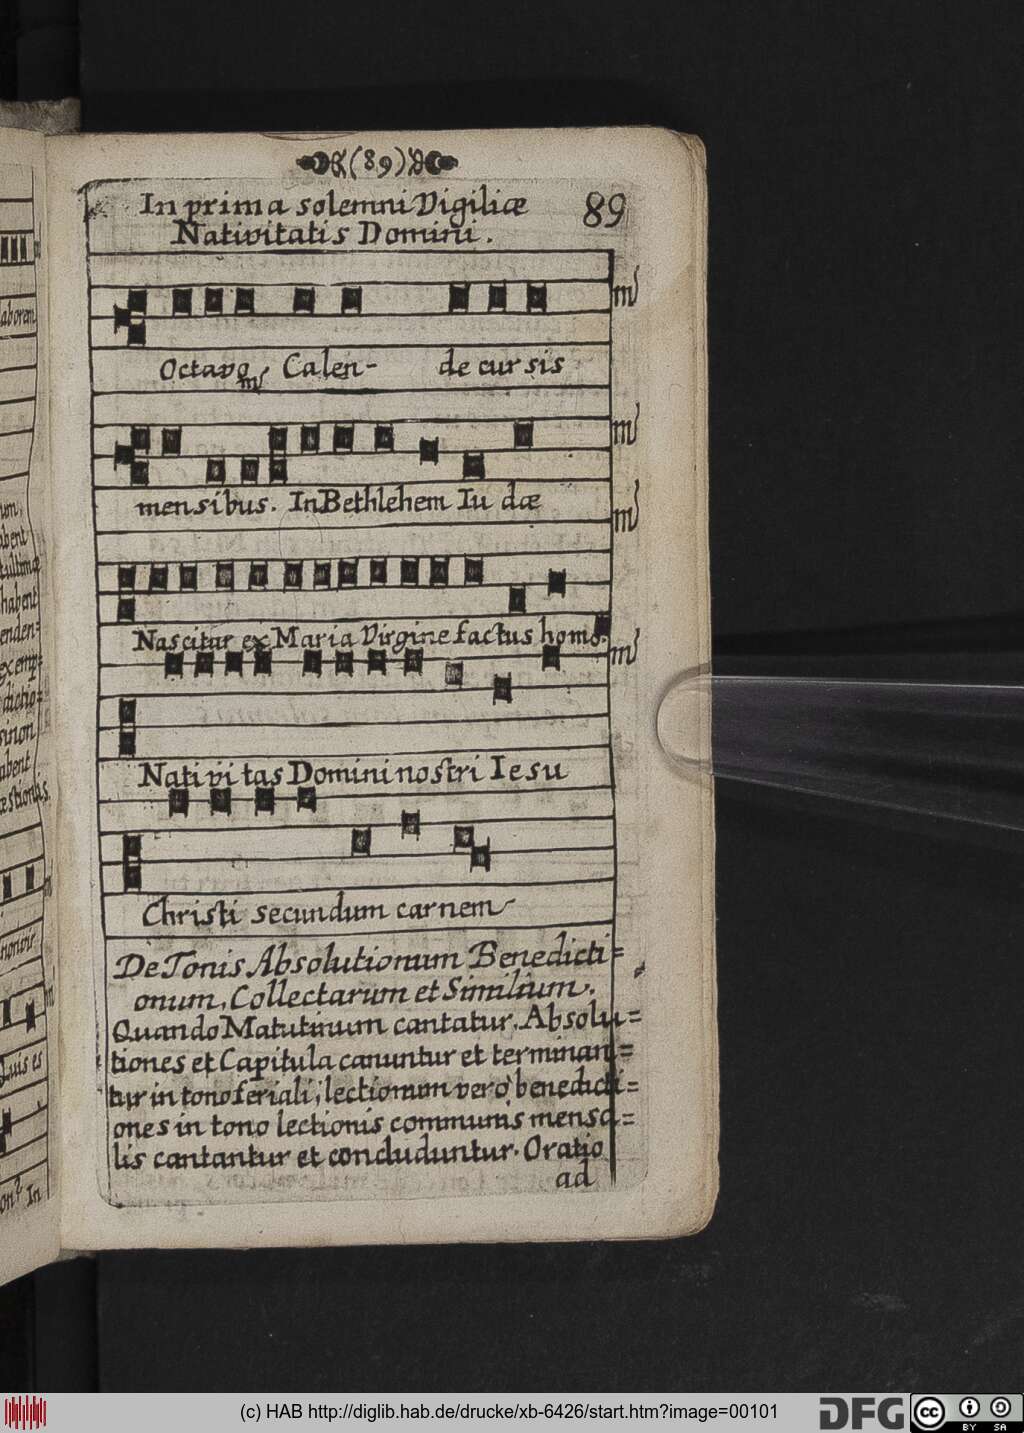 (89)
89
In prima solemni Vigiliæ
Nativitatis Domini.
Octavo Calen- de cur sis
mensibus. In Bethlehem Iu dæ
Nascitur ex Maria Virgine factus homo.
Nativi tas Domini nostri Iesu
Christi secundum carnem
De Tonis Absolutionum Benedicti=
onum, Collectarum et Similium.
Quando Matutinum cantatur, Absolu=
tiones et Capitula canuntur et terminan=
tur in tono feriali; lectionum vero benedicti=
ones in tono lectionis communis mensa=
lis cantantur et concluduntur. Oratio
ad
aborem
habent
Quis es
In
(c) HAB http://diglib.hab.de/drucke/xb-6426/start.htm?image=00101
DFG
cc
BY SA